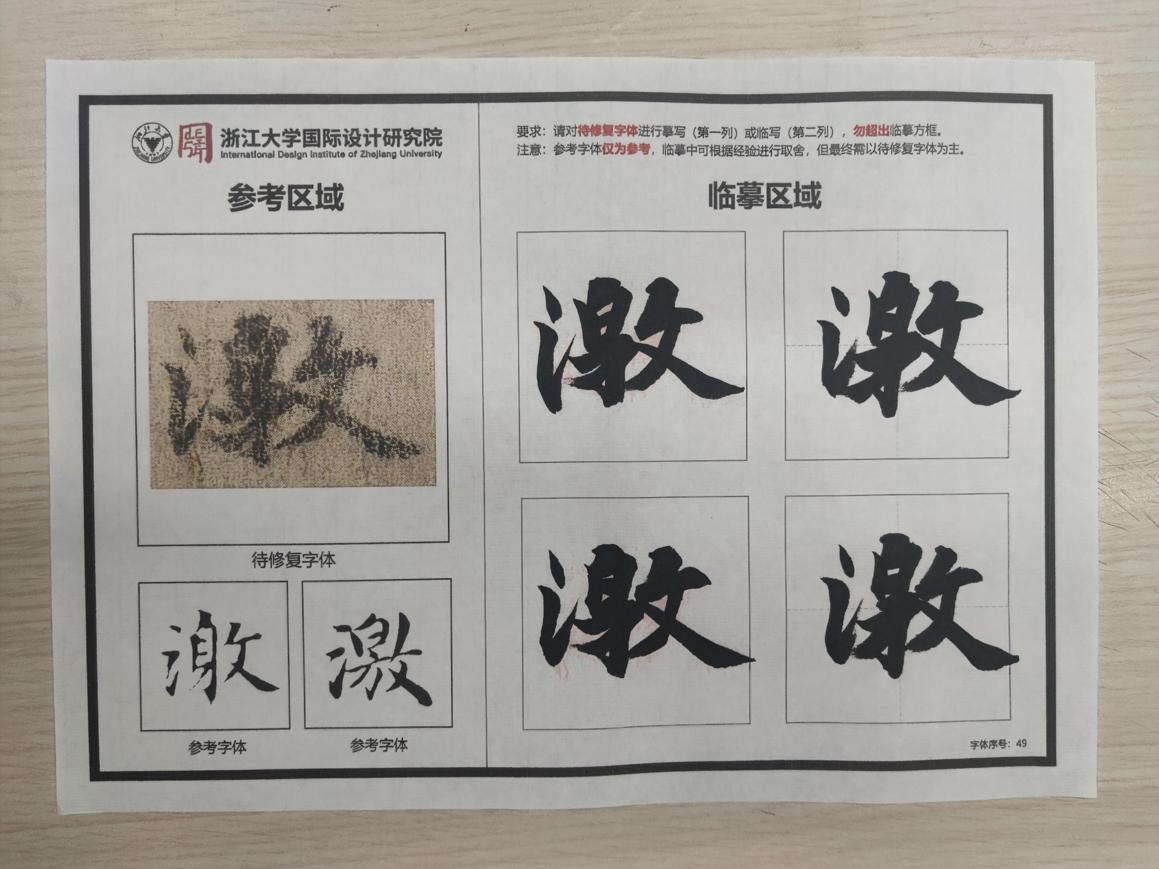 浙江大学国际设计研究院
International Design Institute of Zhejiang University
参考区域
待修复字体
激
激
参考字体
参考字体
要求：请对待修复字体进行摹写（第一列）或临写（第二列），勿超出临摹方框。
注意：参考字体仅为参考，临摹中可根据经验进行取舍，但最终需以待修复字体为主。
临摹区域
激
激
激
激
字体序号：49